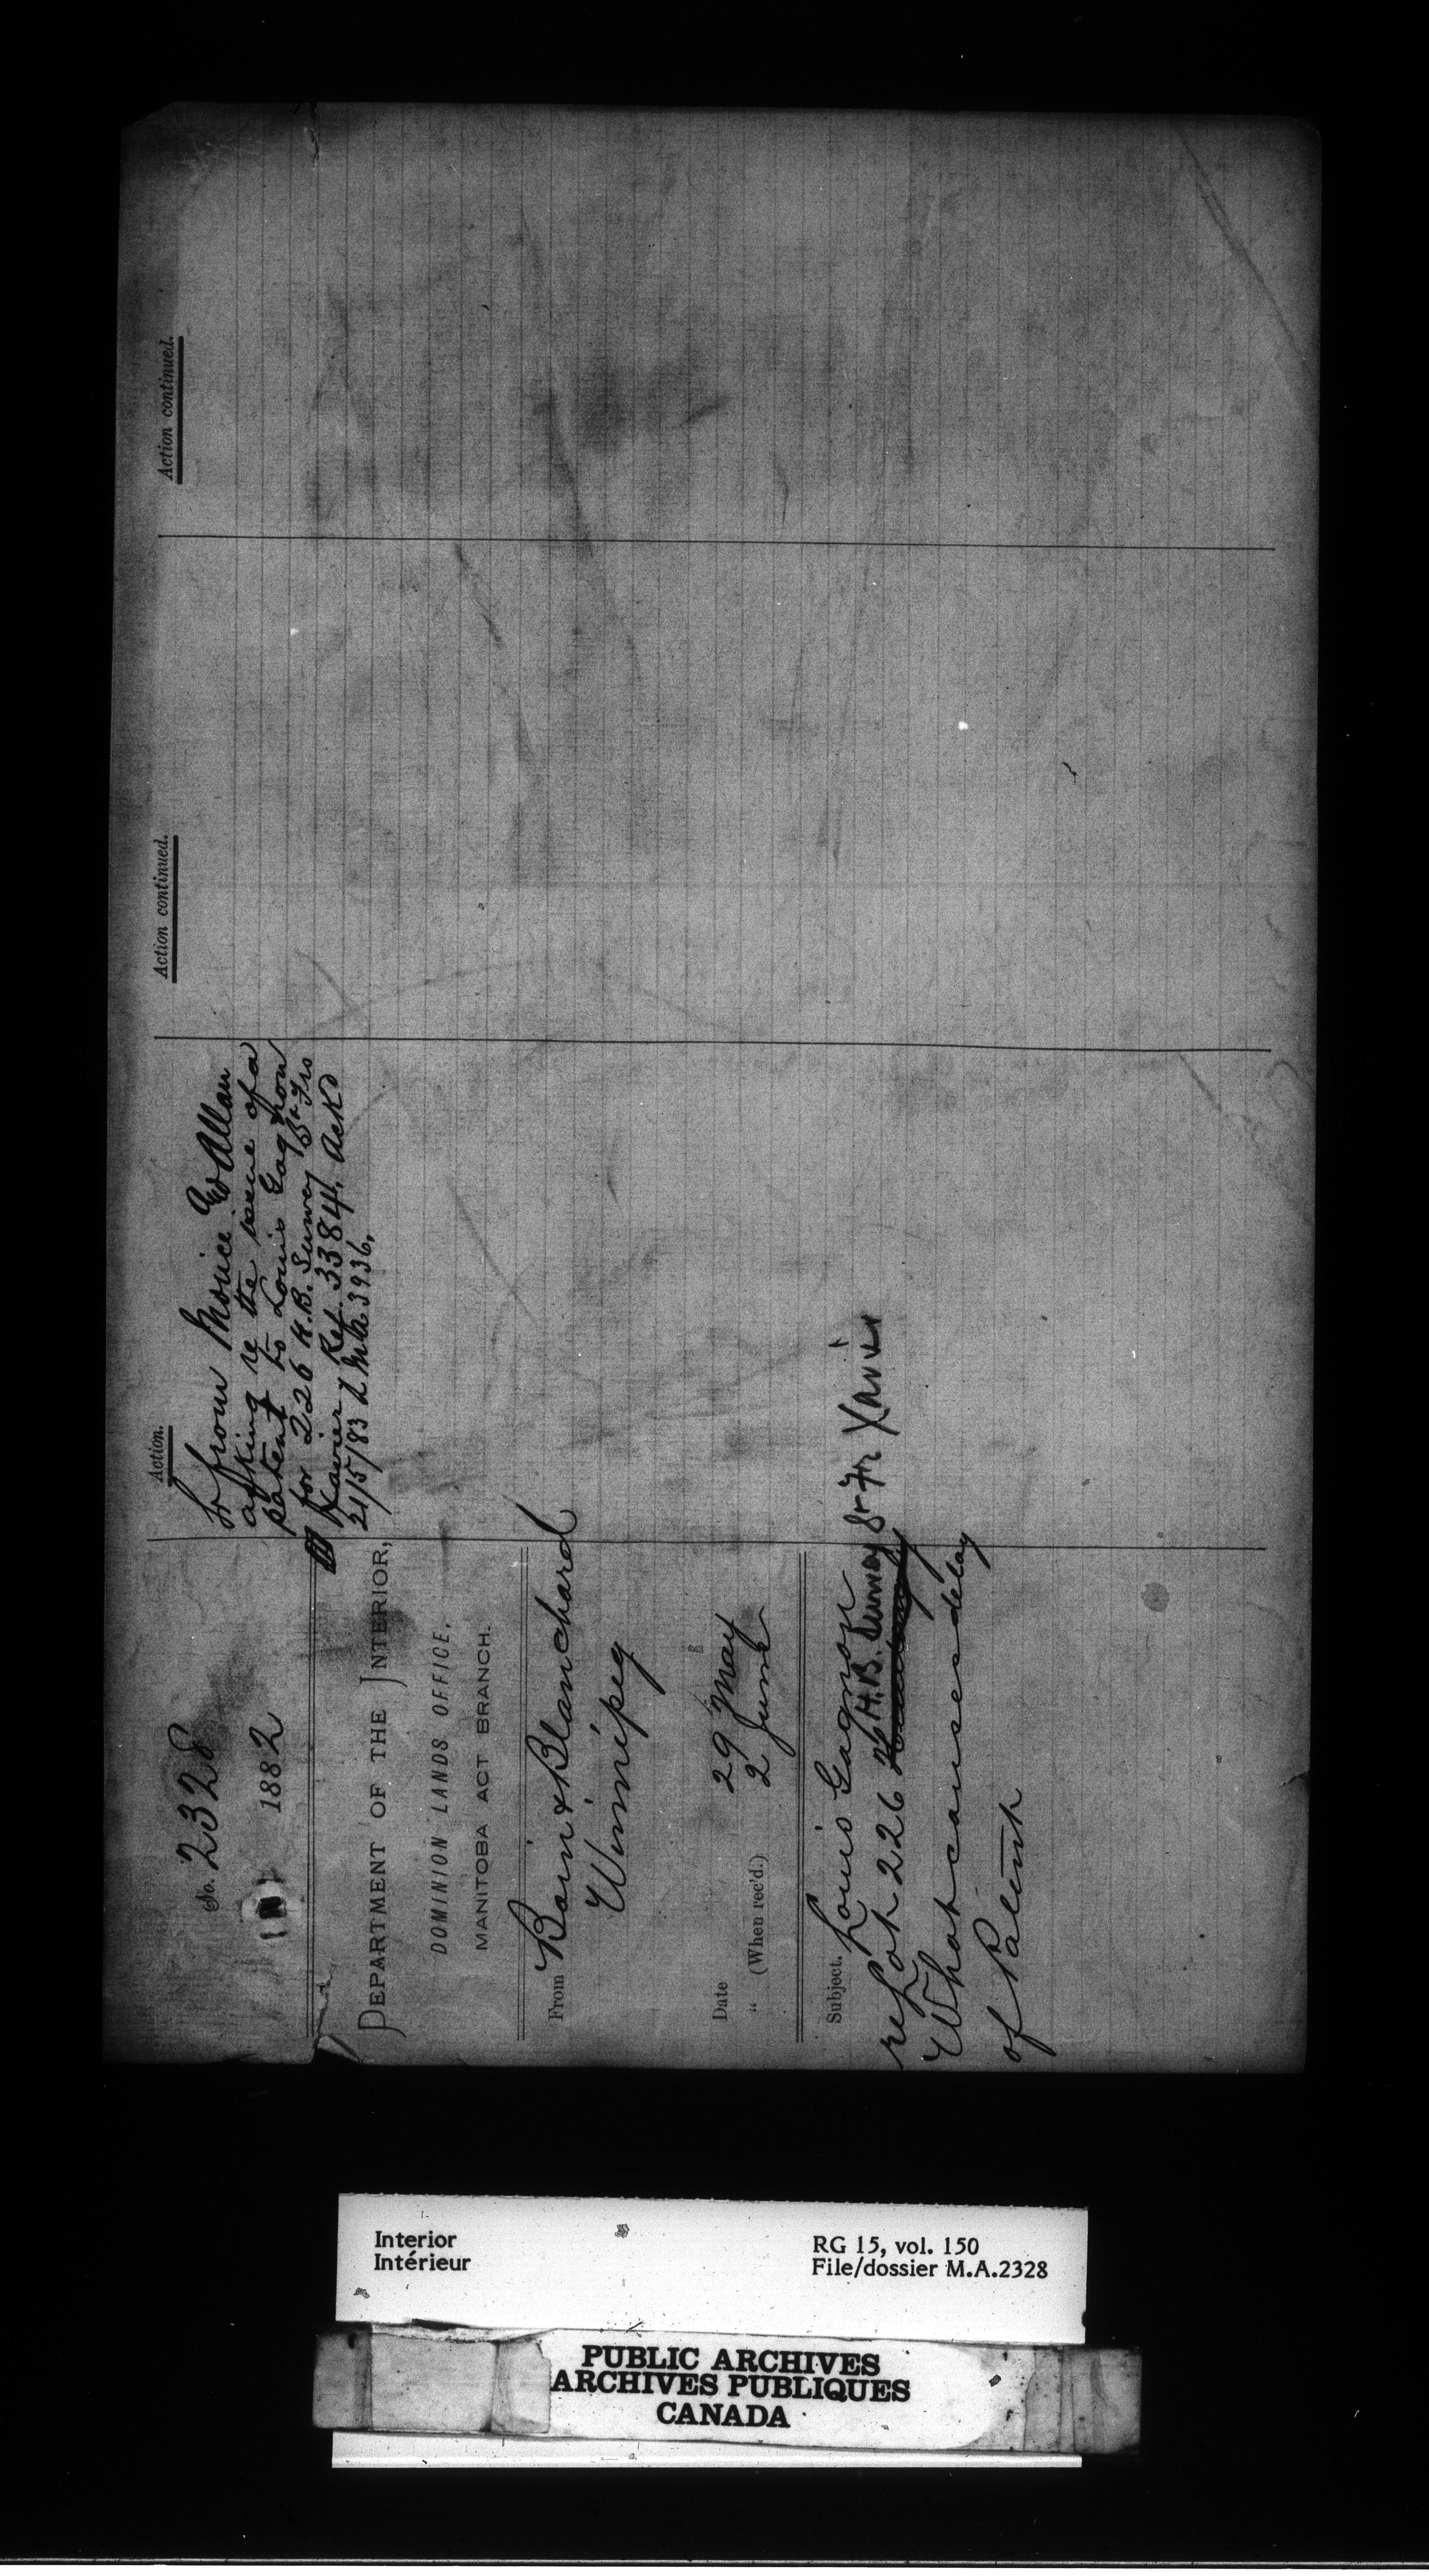 No. 2328
1882
DEPARTMENT OF THE INTERIOR,
DOMINION LANDS OFFICE.
MANITOBA ACT BRANCH.
From Bain & Blanchard
Winnipeg
Date 29 May
" (When rec'd.) 2 June
Subject. Louis Gagnon
re Lot 226 H.B. Survey St Fr Xavier
What causes delay
of Patent
Action.
Lr from Monice & Allan
asking re the issue of a
patent to Louis Gagnon
for 226 H.B. Survey St Frs
Xavier Ref. 3384. Ackd
21/5/83 L 3936.
Action continued.
Action continued.
Interior
Intérieur
RG 15, vol. 150
File/dossier M.A.2328
PUBLIC ARCHIVES
ARCHIVES PUBLIQUES
CANADA